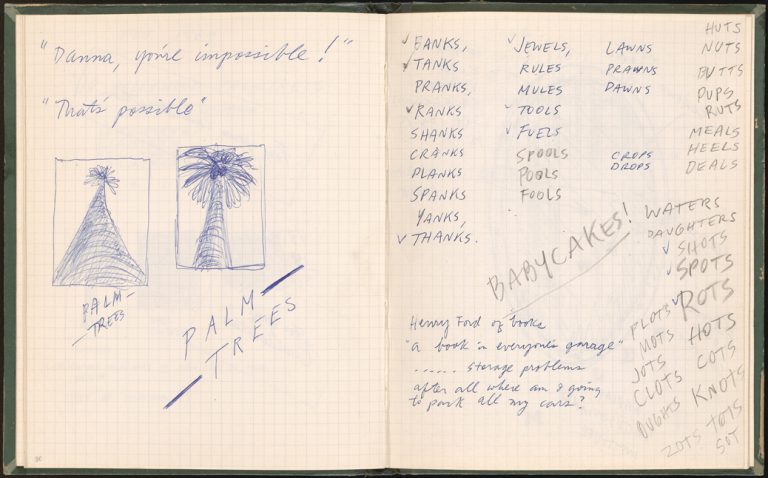 "Danna, you're impossible!"
"That's possible"
PALM-
TREES
PALM-
TREES
BANKS,
TANKS
PRANKS,
RANKS
SHANKS
CRANKS
PLANKS
SPANKS
YANKS,
THANKS.
JEWELS,
RULES
MULES
TOOLS
FUELS
SPOOLS
POOLS
FOOLS
LAWNS
PRAWNS
DAWNS
CROPS
DROPS
HUTS
NUTS
BUTTS
PUPS
RUTS
MEALS
HEELS
DEALS
WATERS
DAUGHTERS
SHOTS
SPOTS
ROTS
HOTS
COTS
KNOTS
TOTS
SOT
PLOTS
MOTS
JOTS
CLOTS
OUGHTS
ZOTS
BABYCAKES!
Henry Ford of books
"a book in everyone's garage"
...... storage problems
after all where am I going
to park all my cars?